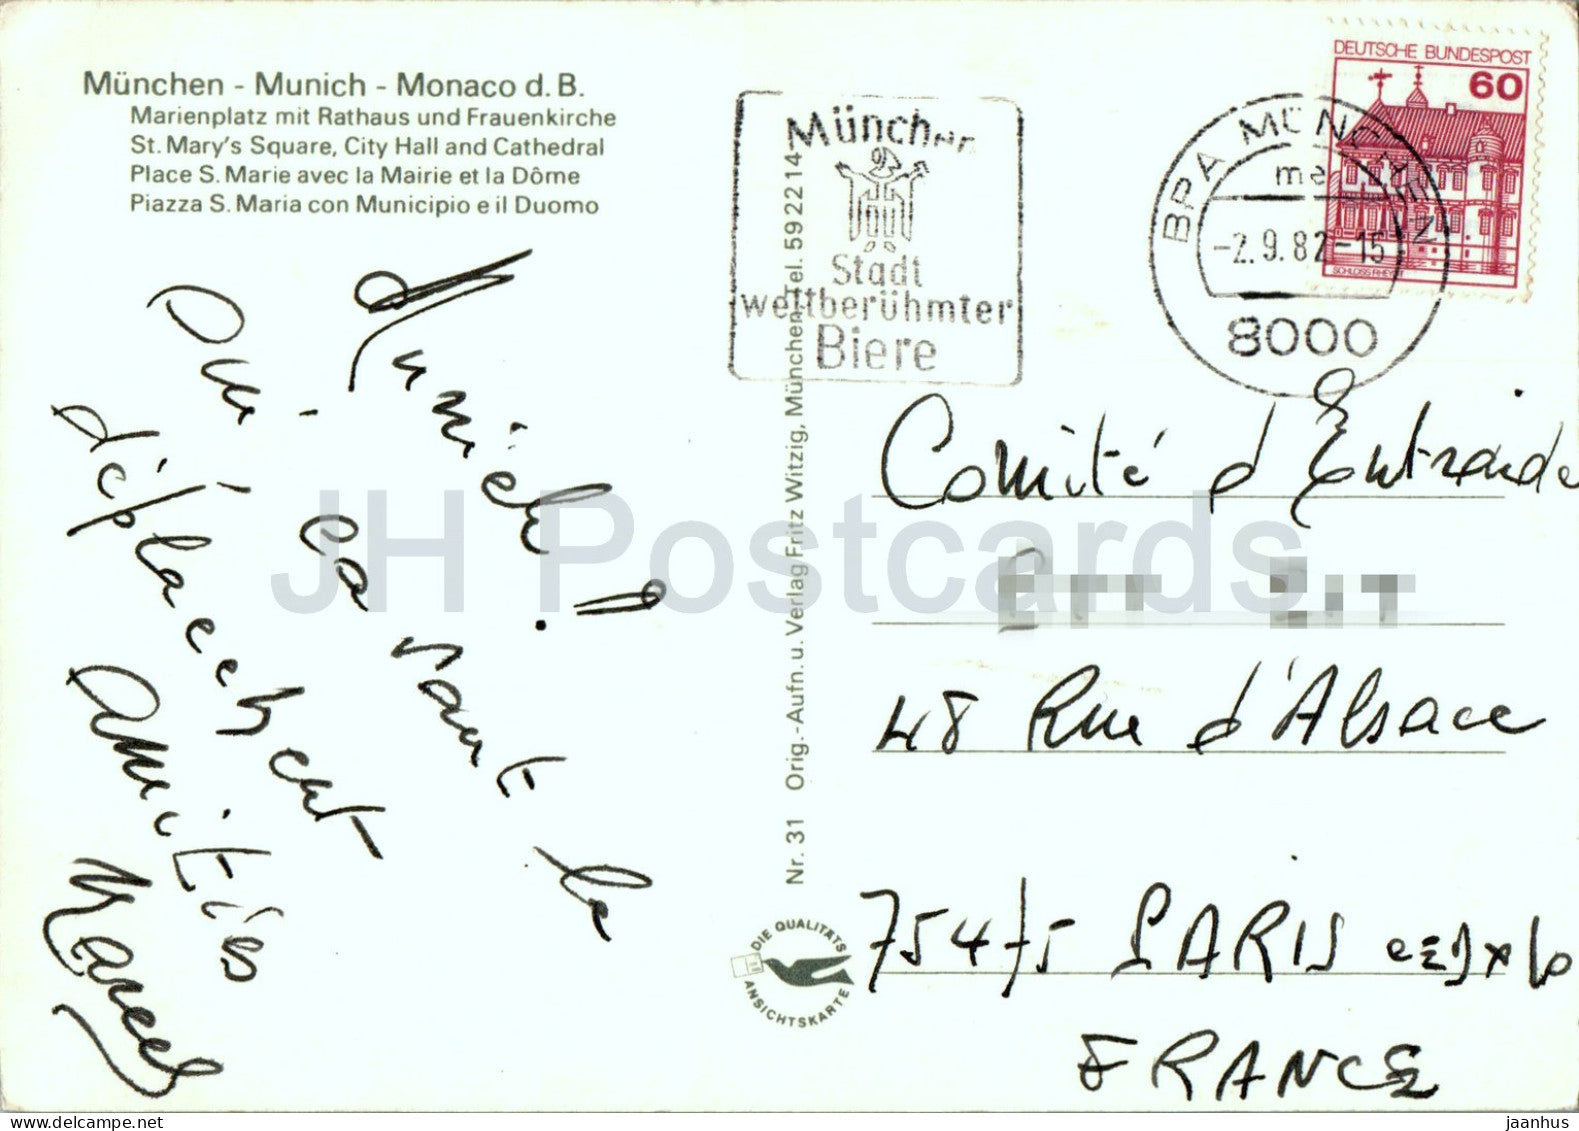 München - Munich - Monaco d. B.
Marienplatz mit Rathaus und Frauenkirche
St. Mary's Square, City Hall and Cathedral
Place S. Marie avec la Mairie et la Dôme
Piazza S. Maria con Municipio e il Duomo
Munich!
Oui, ça vaut le
déplacement
Amitiés
Marcel
Nr. 31 Orig.-Aufn. u. Verlag Fritz Witzig, München, Tel. 592214
DIE QUALITÄTS
ANSICHTSKARTE
München
Stadt
weltberühmter
Biere
BPA MÜNCHEN
me
-2.9.82-15
8000
DEUTSCHE BUNDESPOST
60
SCHLOSS RHEYDT
Comité d'Entraide
48 Rue d'Alsace
75475 PARIS
FRANCE
JH Postcards
www.delcampe.net
jaanhus